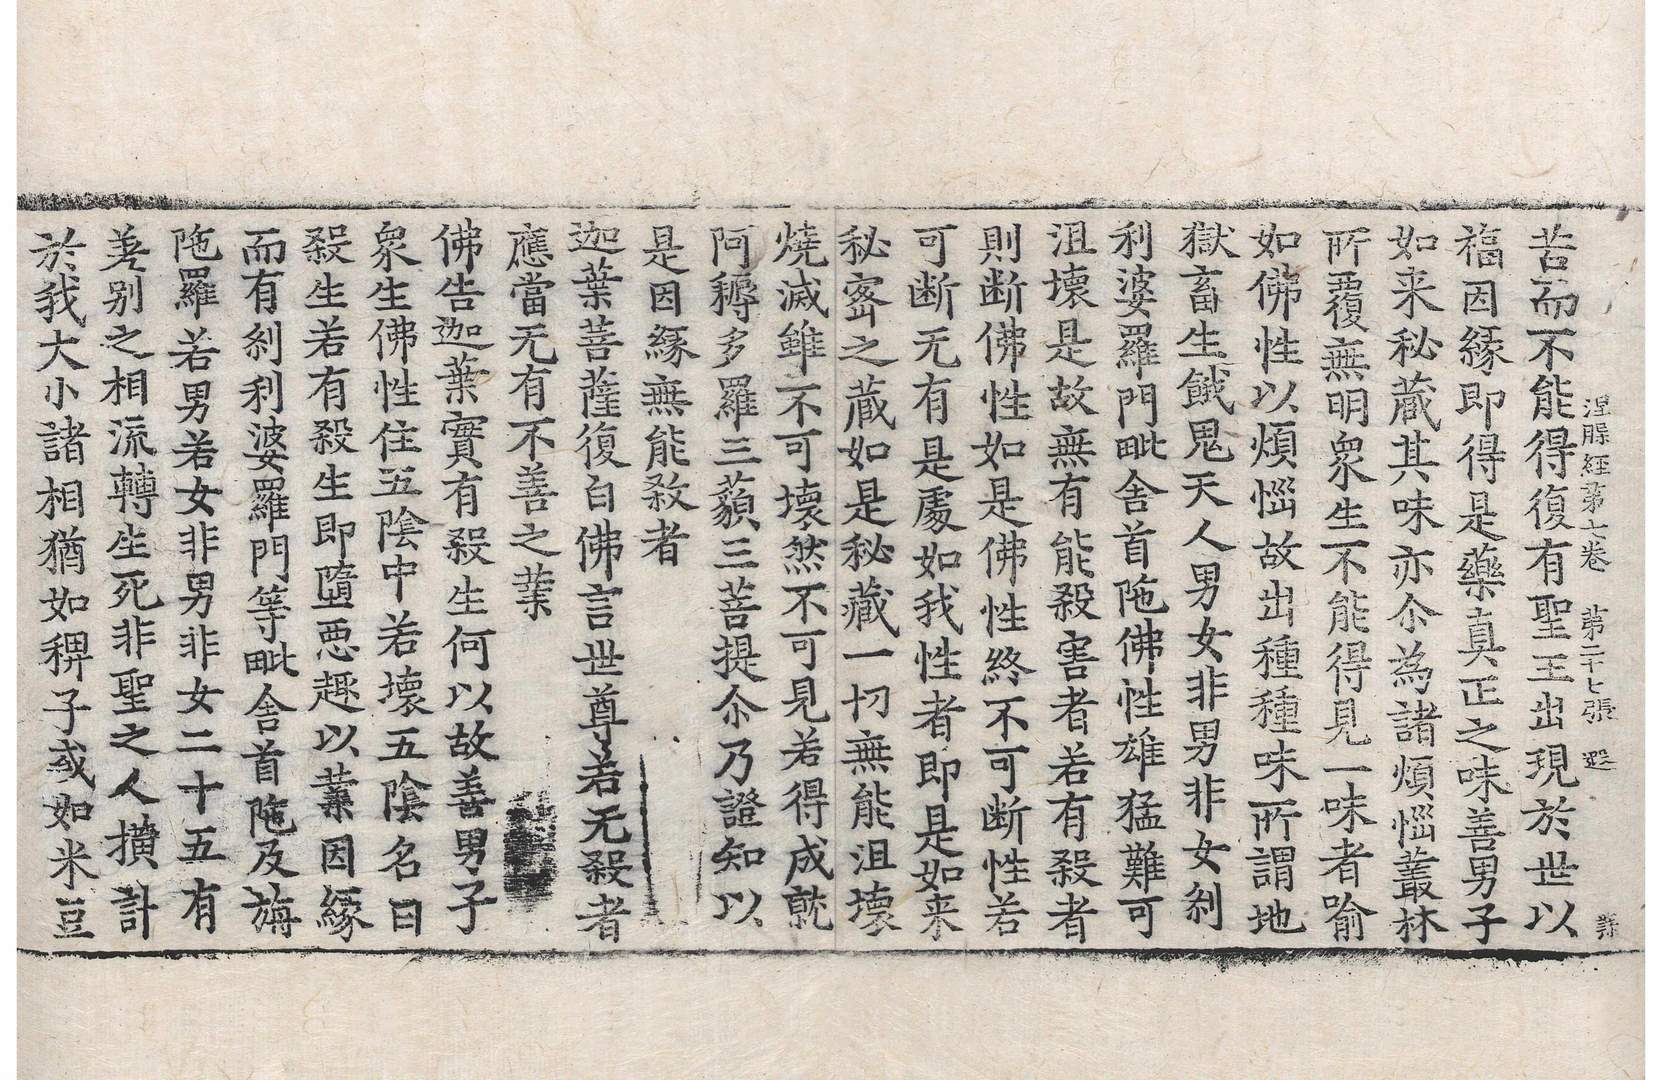 涅槃經第七卷　第二十七張　遐
苦而不能得復有聖王出現於世以
福因緣即得是藥真正之味善男子
如来秘藏其味亦尒為諸煩惱叢林
所覆無明衆生不能得見一味者喻
如佛性以煩惱故出種種味所謂地
獄畜生餓鬼天人男女非男非女刹
利婆羅門毗舍首陁佛性雄猛難可
沮壞是故無有能殺害者若有殺者
則断佛性如是佛性終不可断性若
可断无有是處如我性者即是如来
秘密之藏如是秘藏一切無能沮壞
燒滅雖不可壞然不可見若得成就
阿耨多羅三藐三菩提尒乃證知以
是因緣無能殺者
迦葉菩薩復白佛言世尊若无殺者
應當无有不善之業
佛告迦葉實有殺生何以故善男子
衆生佛性住五陰中若壞五陰名曰
殺生若有殺生即墮惡趣以業因緣
而有刹利婆羅門等毗舍首陁及旃
陁羅若男若女非男非女二十五有
差别之相流轉生死非聖之人撗計
於我大小諸相猶如稗子或如米豆